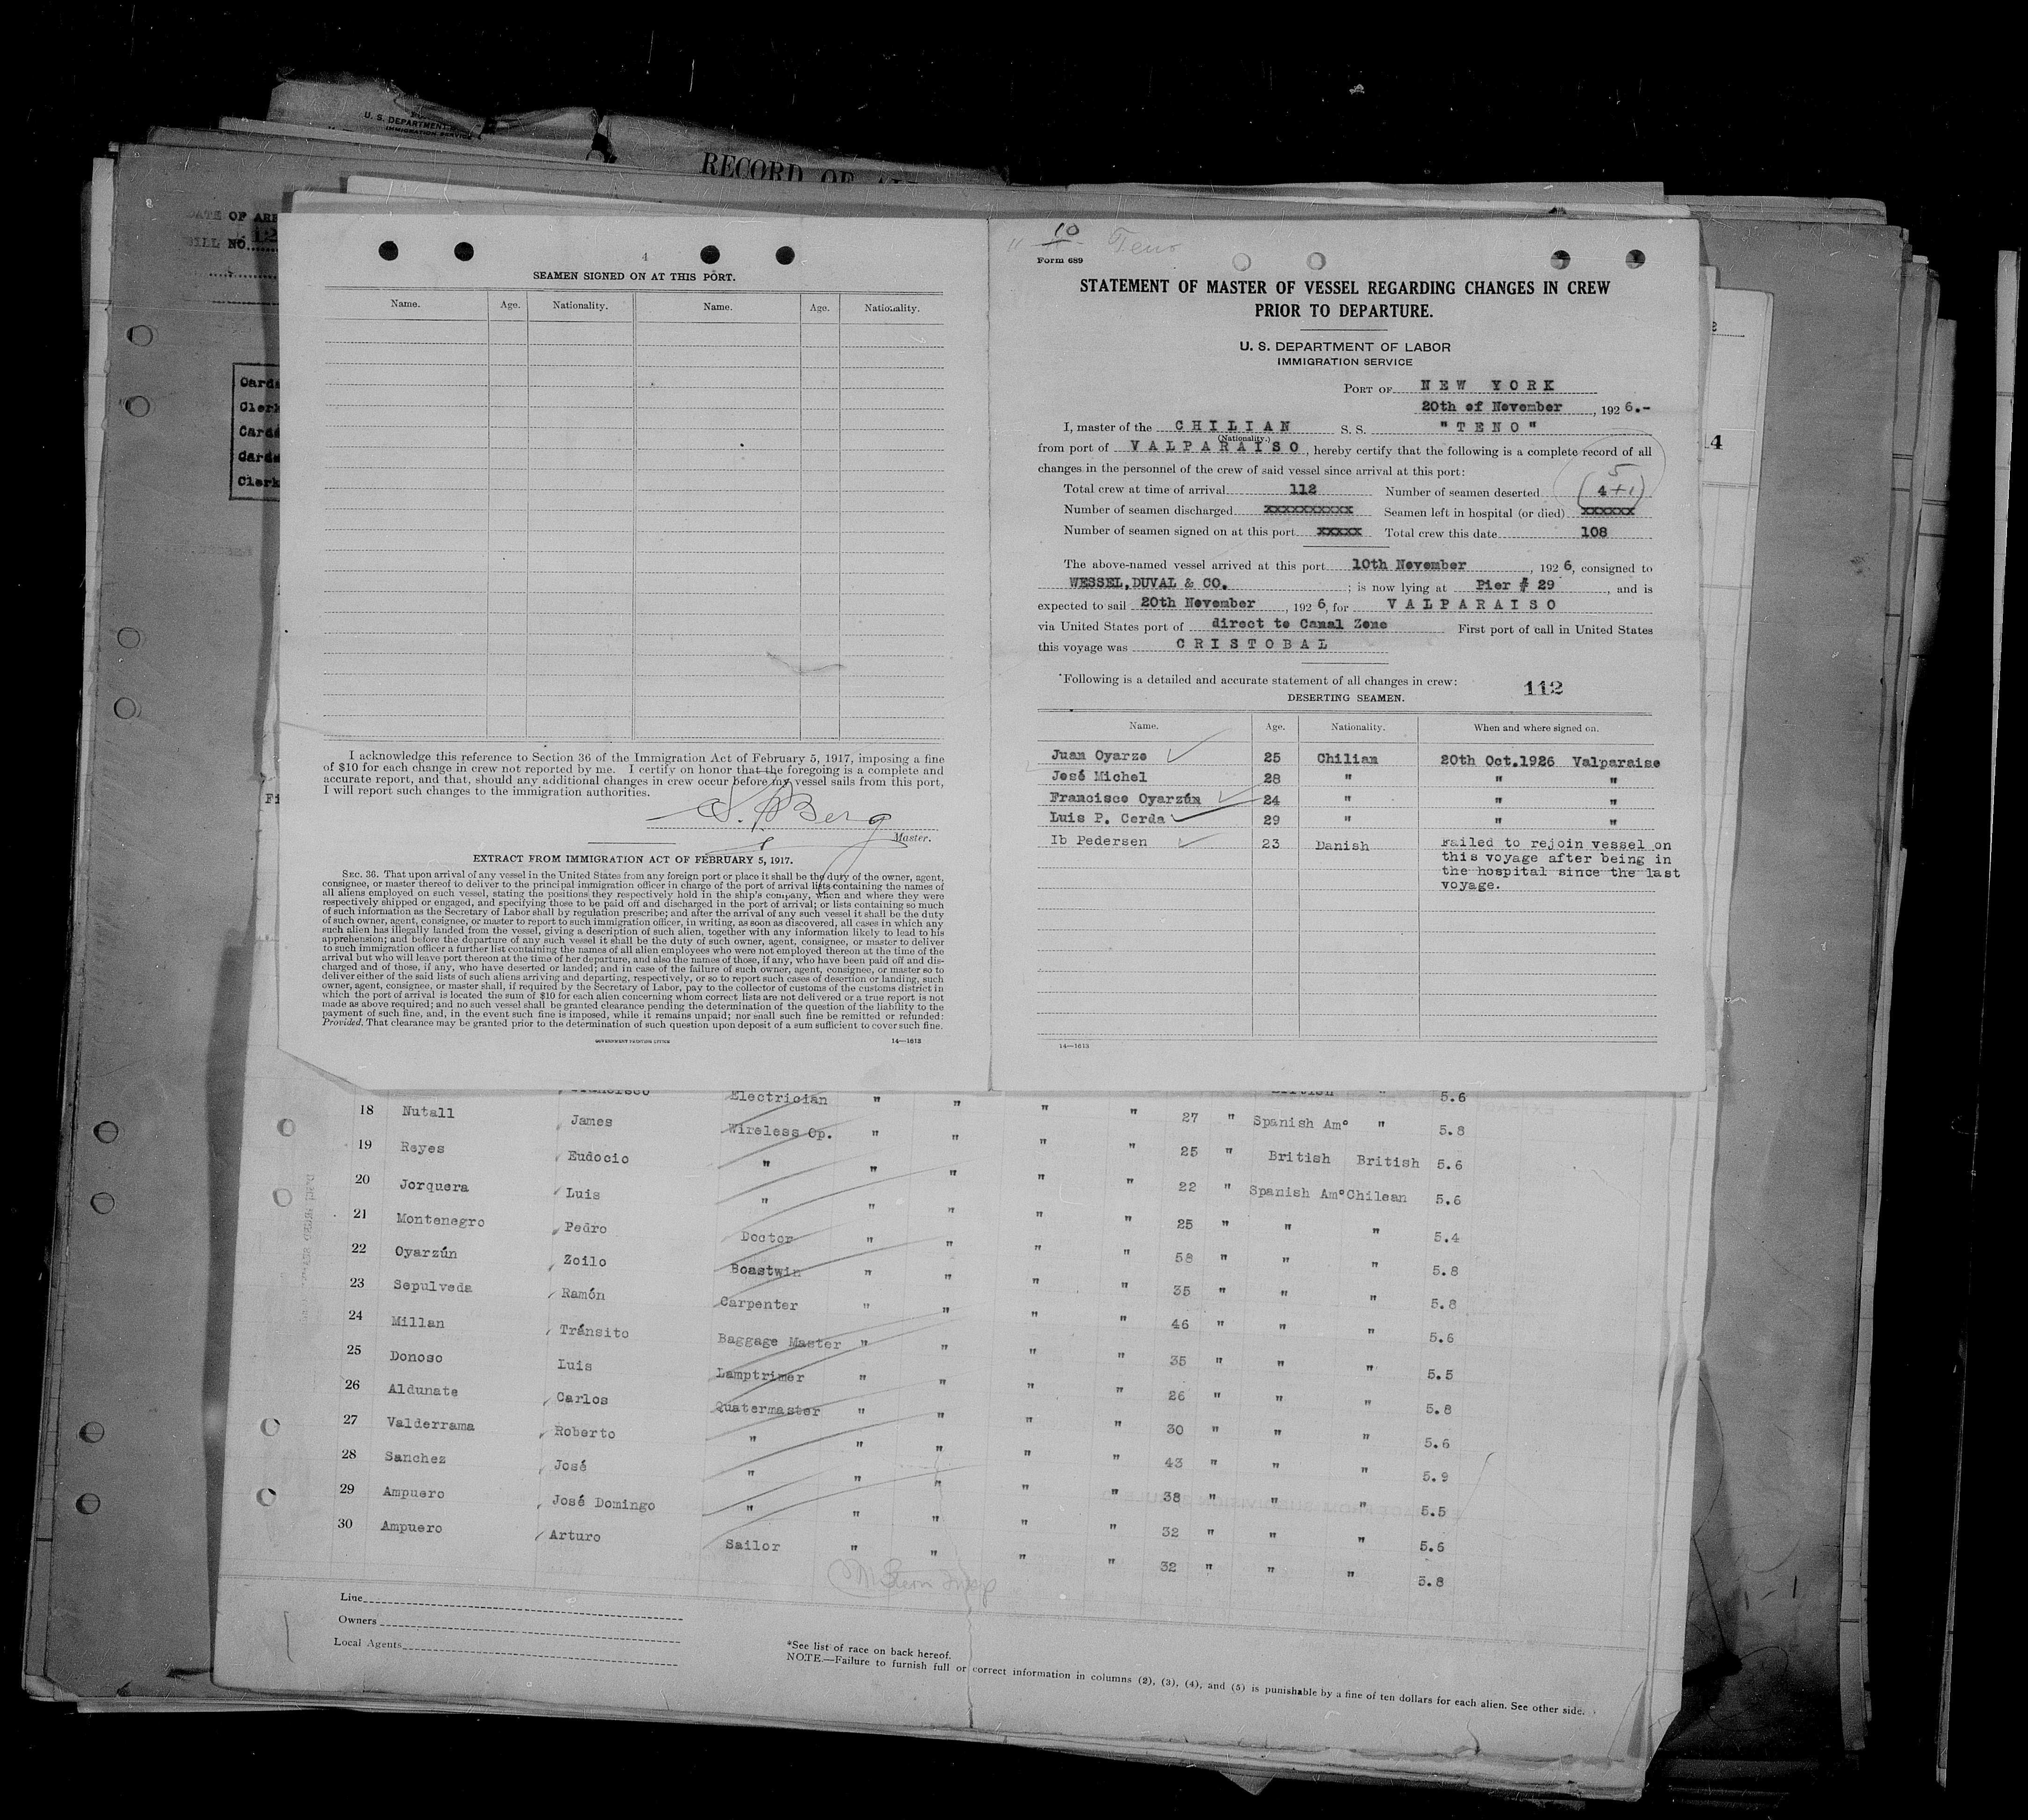 U. S. DEPARTMENT
IMMIGRATION SERVICE
RECORD OF
DATE OF
BILL NO.
12
Cards
Clerk
Cards
Cards
Clerk
4
SEAMEN SIGNED ON AT THIS PORT.
Name. Age. Nationality. Name. Age. Nationality.
I acknowledge this reference to Section 36 of the Immigration Act of February 5, 1917, imposing a fine
of $10 for each change in crew not reported by me. I certify on honor that the foregoing is a complete and
accurate report, and that, should any additional changes in crew occur before my vessel sails from this port,
I will report such changes to the immigration authorities.
Berg
Master.
EXTRACT FROM IMMIGRATION ACT OF FEBRUARY 5, 1917.
SEC. 36. That upon arrival of any vessel in the United States from any foreign port or place it shall be the duty of the owner, agent,
consignee, or master thereof to deliver to the principal immigration officer in charge of the port of arrival lists containing the names of
all aliens employed on such vessel, stating the positions they respectively hold in the ship's company, when and where they were
respectively shipped or engaged, and specifying those to be paid off and discharged in the port of arrival; or lists containing so much
of such information as the Secretary of Labor shall by regulation prescribe; and after the arrival of any such vessel it shall be the duty
of such owner, agent, consignee, or master to report to such immigration officer, in writing, as soon as discovered, all cases in which any
such alien has illegally landed from the vessel, giving a description of such alien, together with any information likely to lead to his
apprehension; and before the departure of any such vessel it shall be the duty of such owner, agent, consignee, or master to deliver
to such immigration officer a further list containing the names of all alien employees who were not employed thereon at the time of the
arrival but who will leave port thereon at the time of her departure, and also the names of those, if any, who have been paid off and dis-
charged and of those, if any, who have deserted or landed; and in case of the failure of such owner, agent, consignee, or master so to
deliver either of the said lists of such aliens arriving and departing, respectively, or so to report such cases of desertion or landing, such
owner, agent, consignee, or master shall, if required by the Secretary of Labor, pay to the collector of customs of the customs district in
which the port of arrival is located the sum of $10 for each alien concerning whom correct lists are not delivered or a true report is not
made as above required; and no such vessel shall be granted clearance pending the determination of the question of the liability to the
payment of such fine, and, in the event such fine is imposed, while it remains unpaid; nor shall such fine be remitted or refunded:
Provided, That clearance may be granted prior to the determination of such question upon deposit of a sum sufficient to cover such fine.
GOVERNMENT PRINTING OFFICE 14—1613
10
Teno
Form 689
STATEMENT OF MASTER OF VESSEL REGARDING CHANGES IN CREW
PRIOR TO DEPARTURE.
U. S. DEPARTMENT OF LABOR
IMMIGRATION SERVICE
PORT OF NEW YORK
20th of November, 1926.-
I, master of the CHILIAN S. S. "TENO"
(Nationality.)
from port of VALPARAISO, hereby certify that the following is a complete record of all
changes in the personnel of the crew of said vessel since arrival at this port:
5
Total crew at time of arrival 112 Number of seamen deserted (4+1)
Number of seamen discharged xxxxxxxxxx Seamen left in hospital (or died) xxxxxx
Number of seamen signed on at this port xxxxx Total crew this date 108
The above-named vessel arrived at this port 10th November, 1926, consigned to
WESSEL, DUVAL & CO.; is now lying at Pier # 29, and is
expected to sail 20th November, 1926, for VALPARAISO
via United States port of direct to Canal Zone First port of call in United States
this voyage was CRISTOBAL
Following is a detailed and accurate statement of all changes in crew: 112
DESERTING SEAMEN.
Name. Age. Nationality. When and where signed on.
Juan Oyarzo 25 Chilian 20th Oct.1926 Valparaiso
José Michel 28 " " "
Francisco Oyarzún 24 " " "
Luis P. Cerda 29 " " "
Ib Pedersen 23 Danish Failed to rejoin vessel on
this voyage after being in
the hospital since the last
voyage.
14—1613
14
Francisco Electrician " " " " 27 " Spanish Amº " 5.6
18 Nutall James Wireless Op. " " " " 25 " British British 5.8
19 Reyes Eudocio " " " " " 22 " Spanish Amº Chilean 5.6
20 Jorquera Luis " " " " " 25 " " " 5.6
21 Montenegro Pedro Doctor " " " " 58 " " " 5.4
22 Oyarzún Zoilo Boastwin " " " " 35 " " " 5.8
23 Sepulveda Ramón Carpenter " " " " 46 " " " 5.8
24 Millan Tránsito Baggage Master " " " " 35 " " " 5.6
25 Donoso Luis Lamptrimer " " " " 26 " " " 5.5
26 Aldunate Carlos Quatermaster " " " " 30 " " " 5.8
27 Valderrama Roberto " " " " " 43 " " " 5.6
28 Sanchez José " " " " " 38 " " " 5.9
29 Ampuero José Domingo " " " " " 32 " " " 5.5
30 Ampuero Arturo Sailor " " " " 32 " " " 5.6
5.8
Line
Owners
Local Agents
*See list of race on back hereof.
NOTE.—Failure to furnish full or correct information in columns (2), (3), (4), and (5) is punishable by a fine of ten dollars for each alien. See other side.